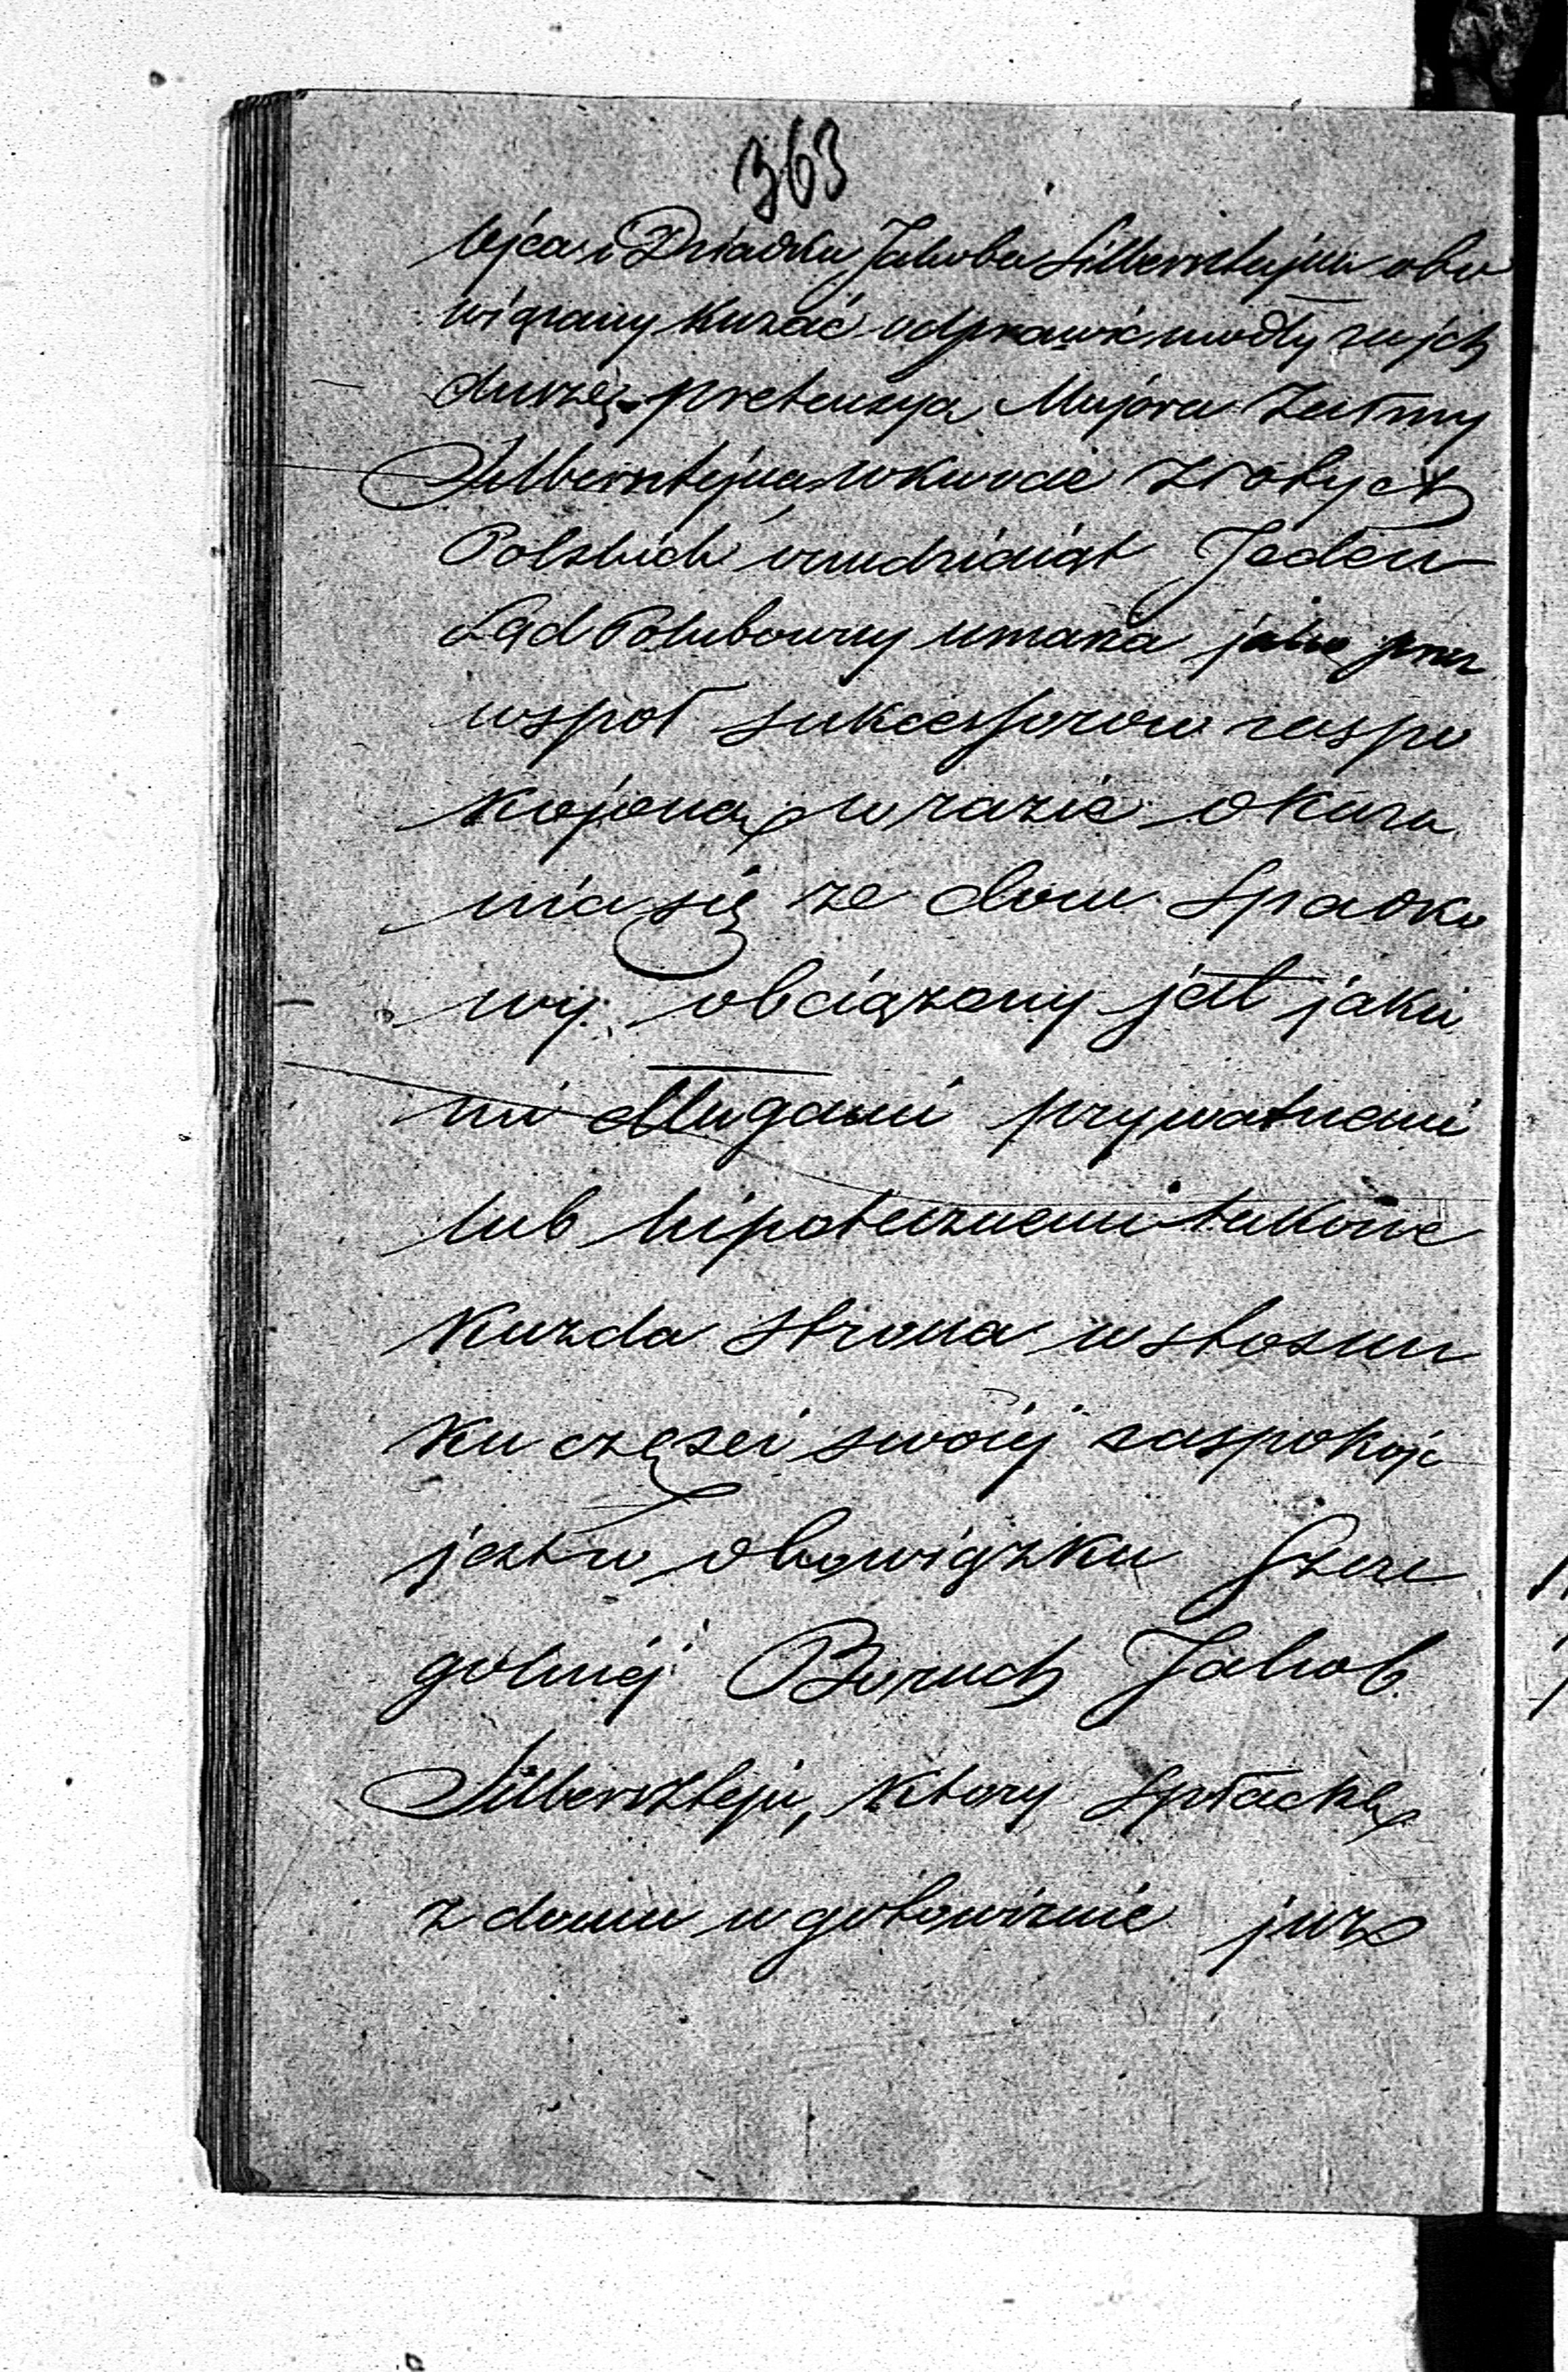 363
Ojca i Dziadka Jakoba Silbersztejna obo
wiązany kazać odprawić modły za ich
duszę. pretensya Majora Załmy
Silbersztejna w kwocie złotych
Polskich Jeden
Sąd Polubowny umaża jako przez
współ sukcessorów zaspo
kojoną w razie okaza
nia się ze dom Spadko
wy obciążony jest jakie
mi długami prywatnemi
lub hipotecznemi takowe
kazda strona w stosun
ku częsci swoiej zaspokoic
jest w obowiązku Szcze
gólniej Boruch Jakob
Silbersztejn, ktory Spłackę
z domu w gotowiznie juz